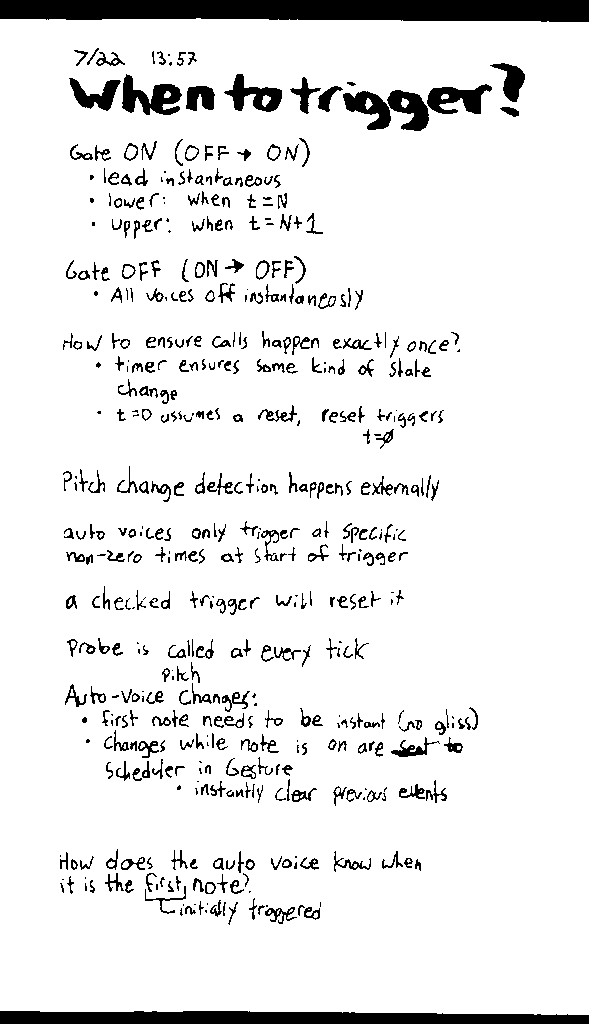 7/22 13:57
When to trigger?
Gate ON (OFF → ON)
• lead instantaneous
• lower: when t=N
• upper: when t=N+1
Gate OFF (ON → OFF)
• All voices off instantaneosly
How to ensure calls happen exactly once?
• timer ensures some kind of state
change
• t=0 assumes a reset, reset triggers
t=0
Pitch change detection happens externally
auto voices only trigger at specific
non-zero times at start of trigger
a checked trigger will reset it
Probe is called at every tick
Pitch
Auto-Voice Changes:
• first note needs to be instant (no gliss)
• Changes while note is on are sent to
Scheduler in Gesture
• instantly clear previous events
How does the auto voice know when
it is the first note?
initially triggered